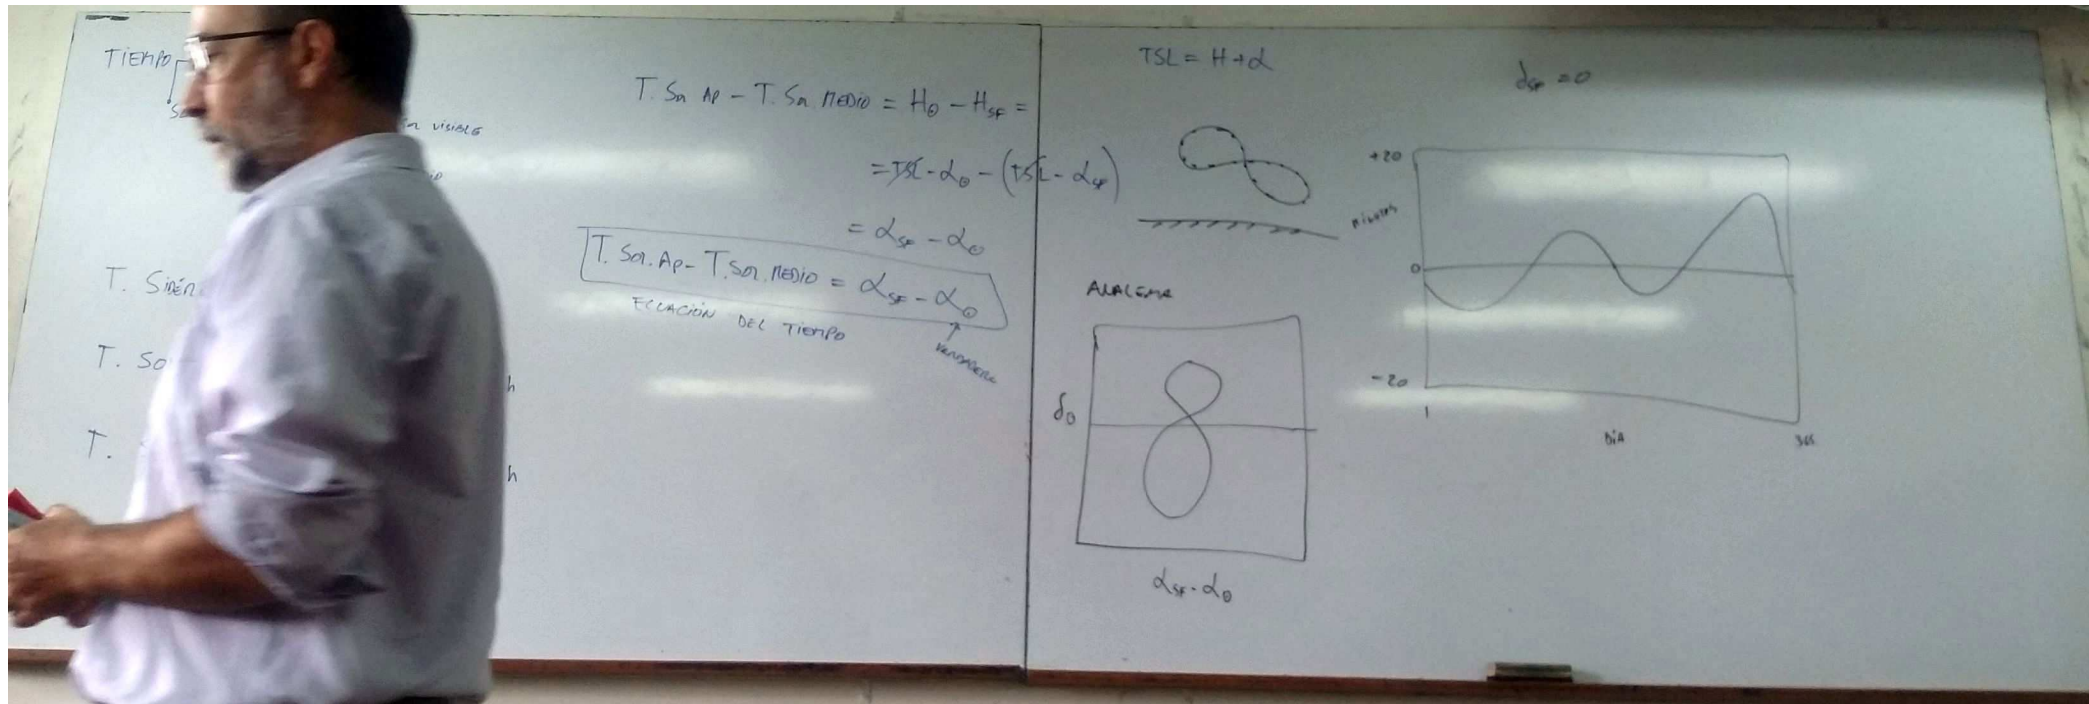 TIEMPO
visible
T. Sol Ap - T. Sol. MEDIO = H⊙ - HSF =
= TSL - α⊙ - (TSL - αSF)
= αSF - α⊙
T. Sol. Ap - T. Sol. MEDIO = αSF - α⊙
ECUACIÓN DEL TIEMPO
VERDADERO
T. SIDÉR
T. SO
h
T.
h
TSL = H + α
ANALEMA
δ⊙
αSF - α⊙
δSF = 0
+20
MINUTOS
0
-20
1
DÍA
365